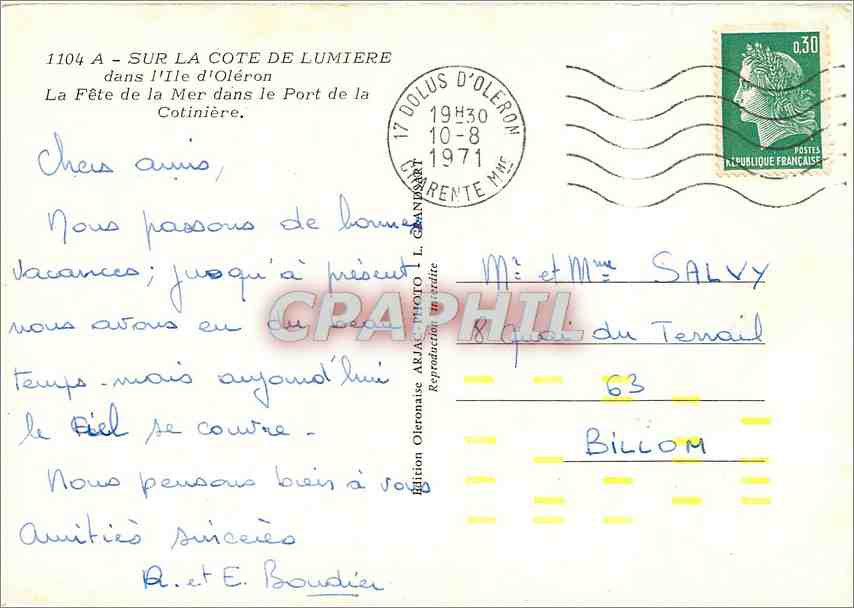 1104 A - SUR LA COTE DE LUMIERE
dans l'Ile d'Oléron
La Fête de la Mer dans le Port de la
Cotinière.
17 DOLUS D'OLERON
19H30
10-8
1971
CHARENTE MME
0,30
POSTES
RÉPUBLIQUE FRANÇAISE
Chers amis,
Nous passons de bonnes
vacances ; jusqu'à présent
nous avons eu du beau
temps - mais aujourd'hui
le Ciel se couvre -
Nous pensons bien à vous
Amitiés sincères
R. et E. Boudier
Edition Oleronaise ARJAC-PHOTO - L. GRANDSART
Reproduction interdite
Mr et Mme SALVY
8 quai du Terrail
63
BILLOM
CPAPHIL